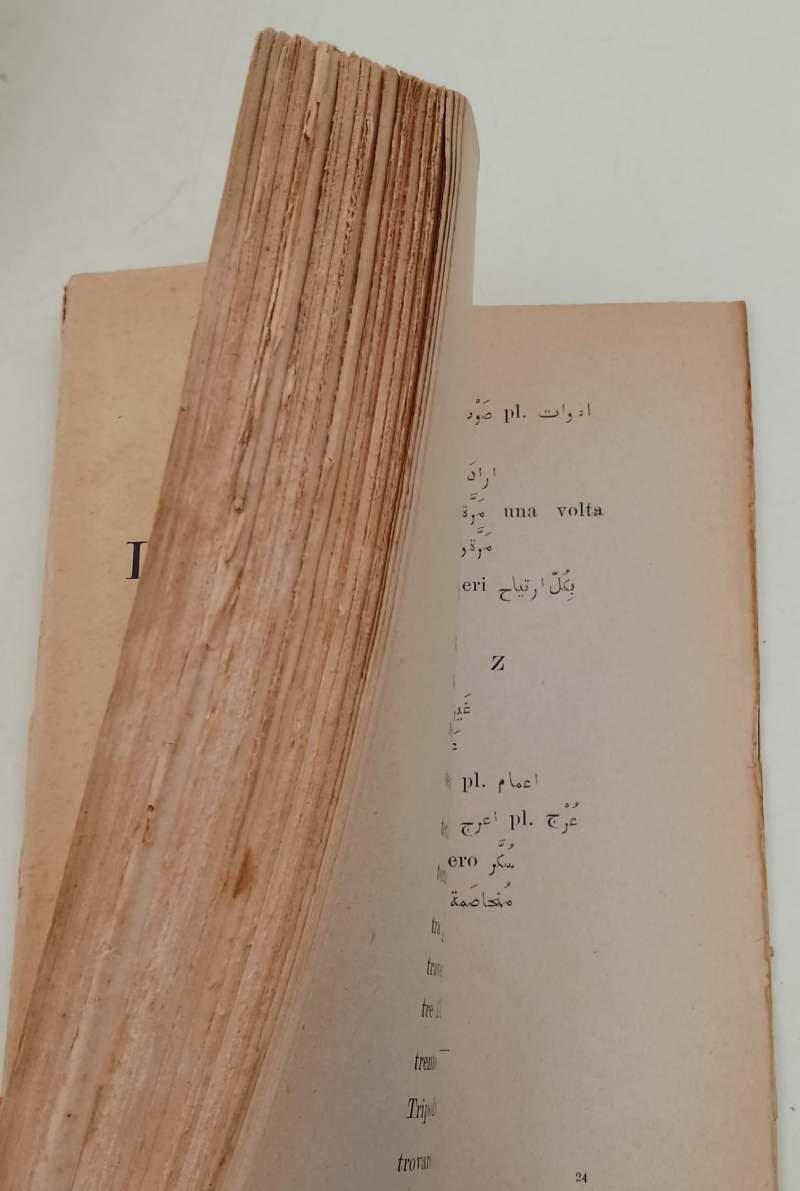 I
صَوْد pl. ادوات
اراد
مَرَّة una volta
مَرَّة و
eri بِكُلّ ارتياح
Z
غَير
pl. اعمام
اعرج pl. عُرْج
ero سُكَّر
مُخاصَمة
tre
trent
Tripoli
trovar
24